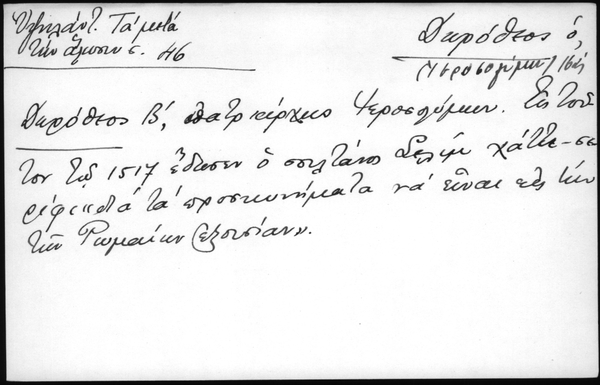 Ὑψηλάντ. Τὰ μετὰ
τὴν ἅλωσιν σ. 46
Δωρόθεος ὁ,
(Ἱεροσολύμων)
Δωρόθεος Β', πατριάρχης Ἱεροσολύμων. Εἰς τοῦ-
τον τῷ 1517 ἔδωσεν ὁ σουλτάνος Σελὴμ χάττι-σε-
ρίφ τὰ προσκυνήματα νὰ εἶναι εἰς τὴν
τῶν Ρωμαίων ἐξουσίαν.